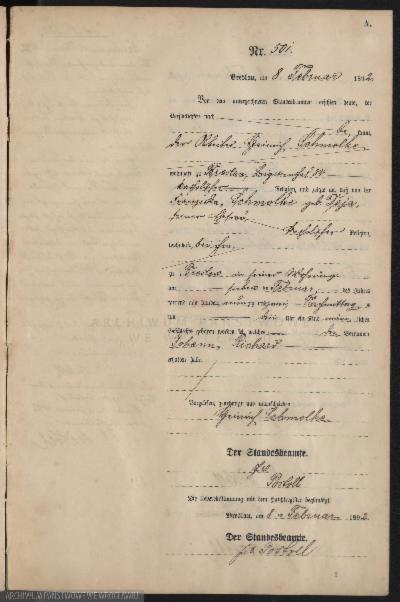 A.
Nr. 501.
Breslau, am 8. Februar 1892
Vor dem unterzeichneten Standesbeamten erschien heute, der
Persönlichkeit nach
be kannt,
der Arbeiter Heinrich Schmolke
wohnhaft zu Breslau,
katholischer Religion, und zeigte an, daß von der
Schmolke geb.
seiner Ehefrau,
katholischer Religion,
wohnhaft bei ihm,
zu Breslau in seiner Wohnung
am Februar des Jahres
tausend acht hundert neunzig zwei Nachmittag s
um Uhr ein Kind männ liches
Geschlechts geboren worden sei, welches Vornamen
Johann, Richard
erhalten habe.
Vorgelesen, genehmigt und unterschrieben
Heinrich Schmolke
Der Standesbeamte.
Die Uebereinstimmung mit dem Hauptregister beglaubigt
Breslau, am 8 ten Februar 1892
Der Standesbeamte.
ARCHIWUM PAŃSTWOWE WE WROCŁAWIU